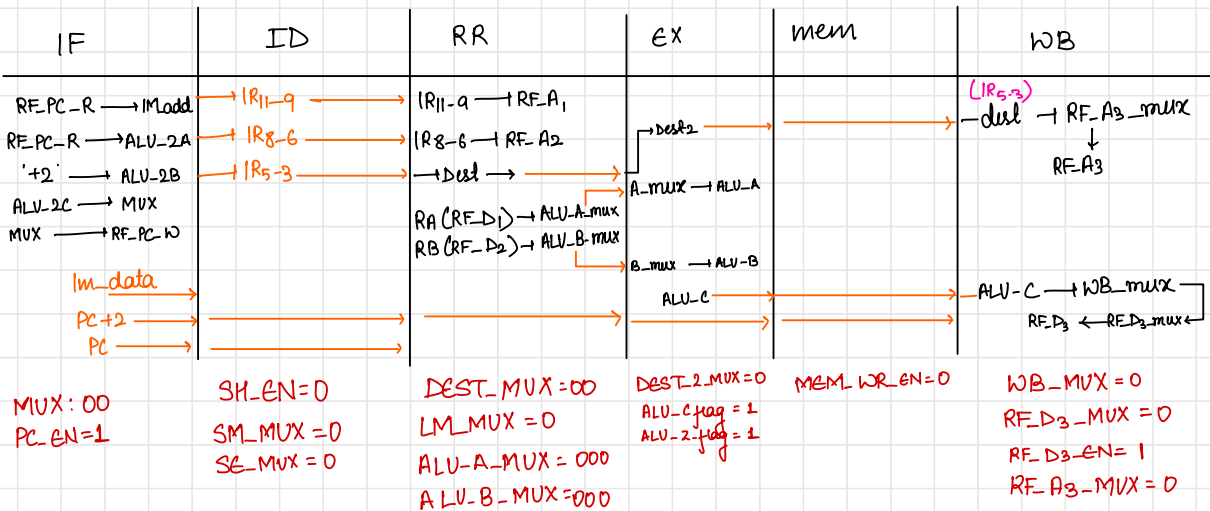 IF
RF_PC_R → IM add
RF_PC_R → ALU_2A
'+2' → ALU_2B
ALU_2C → MUX
MUX → RF_PC_W
Im_data
PC+2
PC
MUX: 00
PC_EN=1
ID
IR11-9
IR8-6
IR5-3
SH_EN=0
SM_MUX=0
SE_MUX=0
RR
IR11-9 → RF_A1
IR8-6 → RF_A2
→ Dest →
RA (RF_D1) → ALU_A_mux
RB (RF_D2) → ALU_B_mux
DEST_MUX=00
LM_MUX=0
ALU_A_MUX=000
ALU_B_MUX=000
EX
→ Dest2
A_mux → ALU_A
B_mux → ALU_B
ALU_C
DEST_2_MUX=0
ALU_C flag = 1
ALU_2_flag = 1
mem
MEM_WR_EN=0
WB
(IR5-3)
dest → RF_A3_mux
↓
RF_A3
ALU_C → WB_mux
RF_D3 ← RF_D3_mux
WB_MUX=0
RF_D3_MUX=0
RF_D3_EN=1
RF_A3_MUX=0